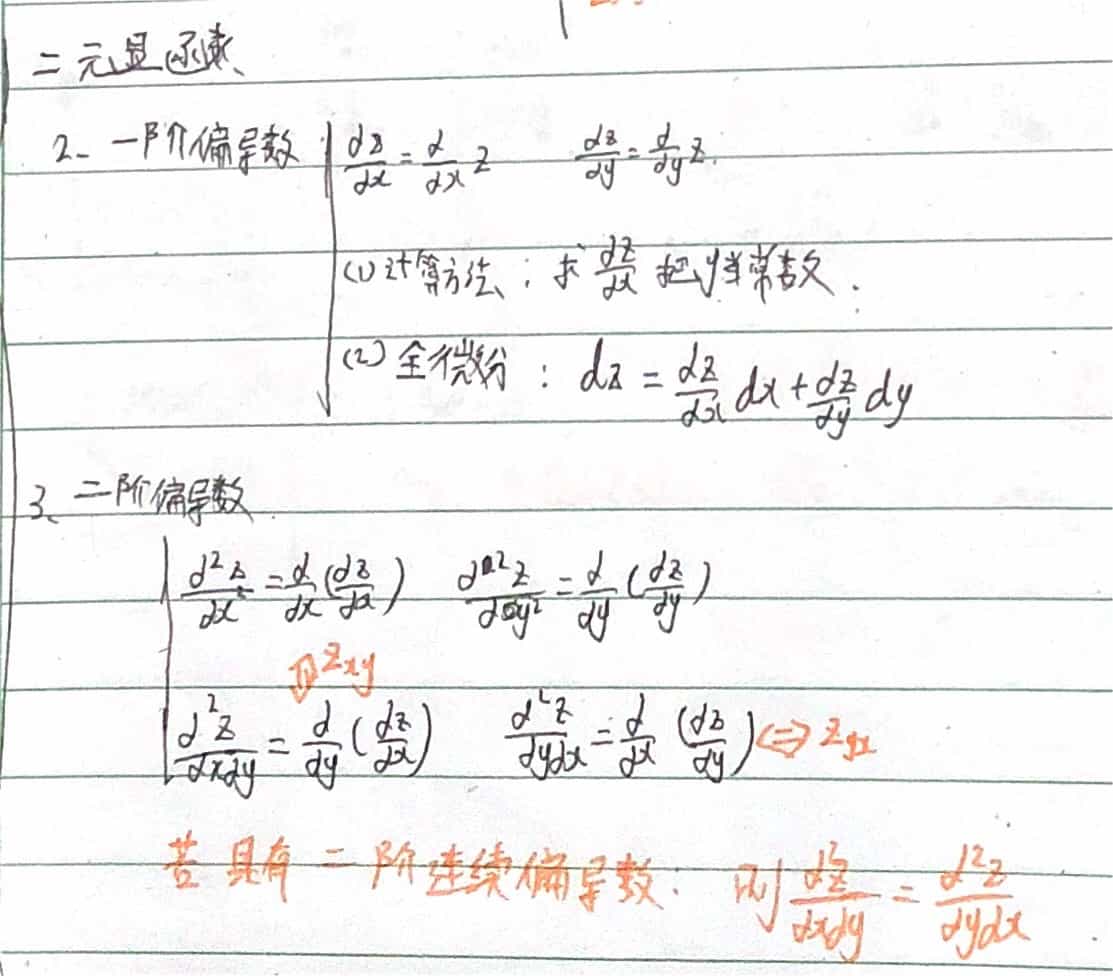 二元显函数
2、一阶偏导数 dz/dx = d/dx z dz/dy = d/dy z.
(1) 计算方法：求 dz/dx 把y当常数.
(2) 全微分：dz = dz/dx dx + dz/dy dy
3、二阶偏导数
d²z/dx² = d/dx (dz/dx) d²z/dy² = d/dy (dz/dy)
⇕ zxy
d²z/dxdy = d/dy (dz/dx) d²z/dydx = d/dx (dz/dy) ⇔ zyx
若具有二阶连续偏导数：则 d²z/dxdy = d²z/dydx